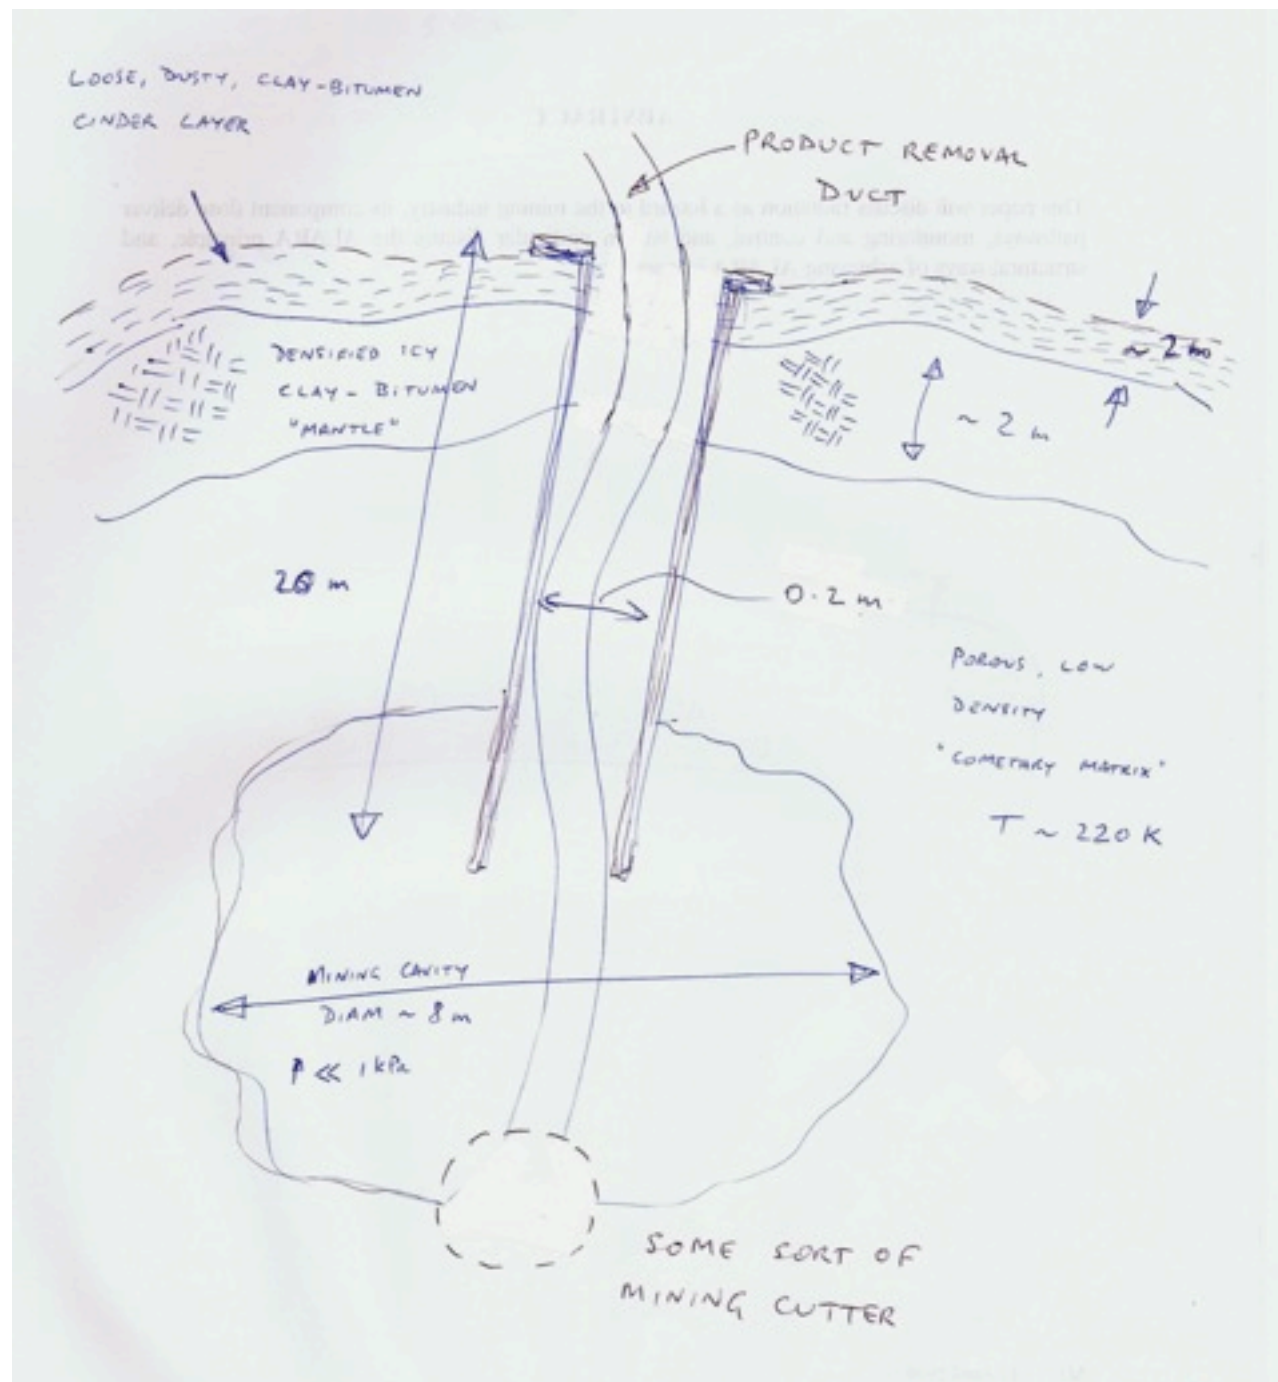 LOOSE, DUSTY, CLAY-BITUMEN
CINDER LAYER
PRODUCT REMOVAL
DUCT
DENSIFIED ICY
CLAY-BITUMEN
"MANTLE"
~ 2 m
~ 2 m
m
0.2 m
POROUS, LOW
DENSITY
"COMETARY MATRIX"
T ~ 220 K
MINING CAVITY
DIAM ~ 8 m
P << 1 kPa
SOME SORT OF
MINING CUTTER